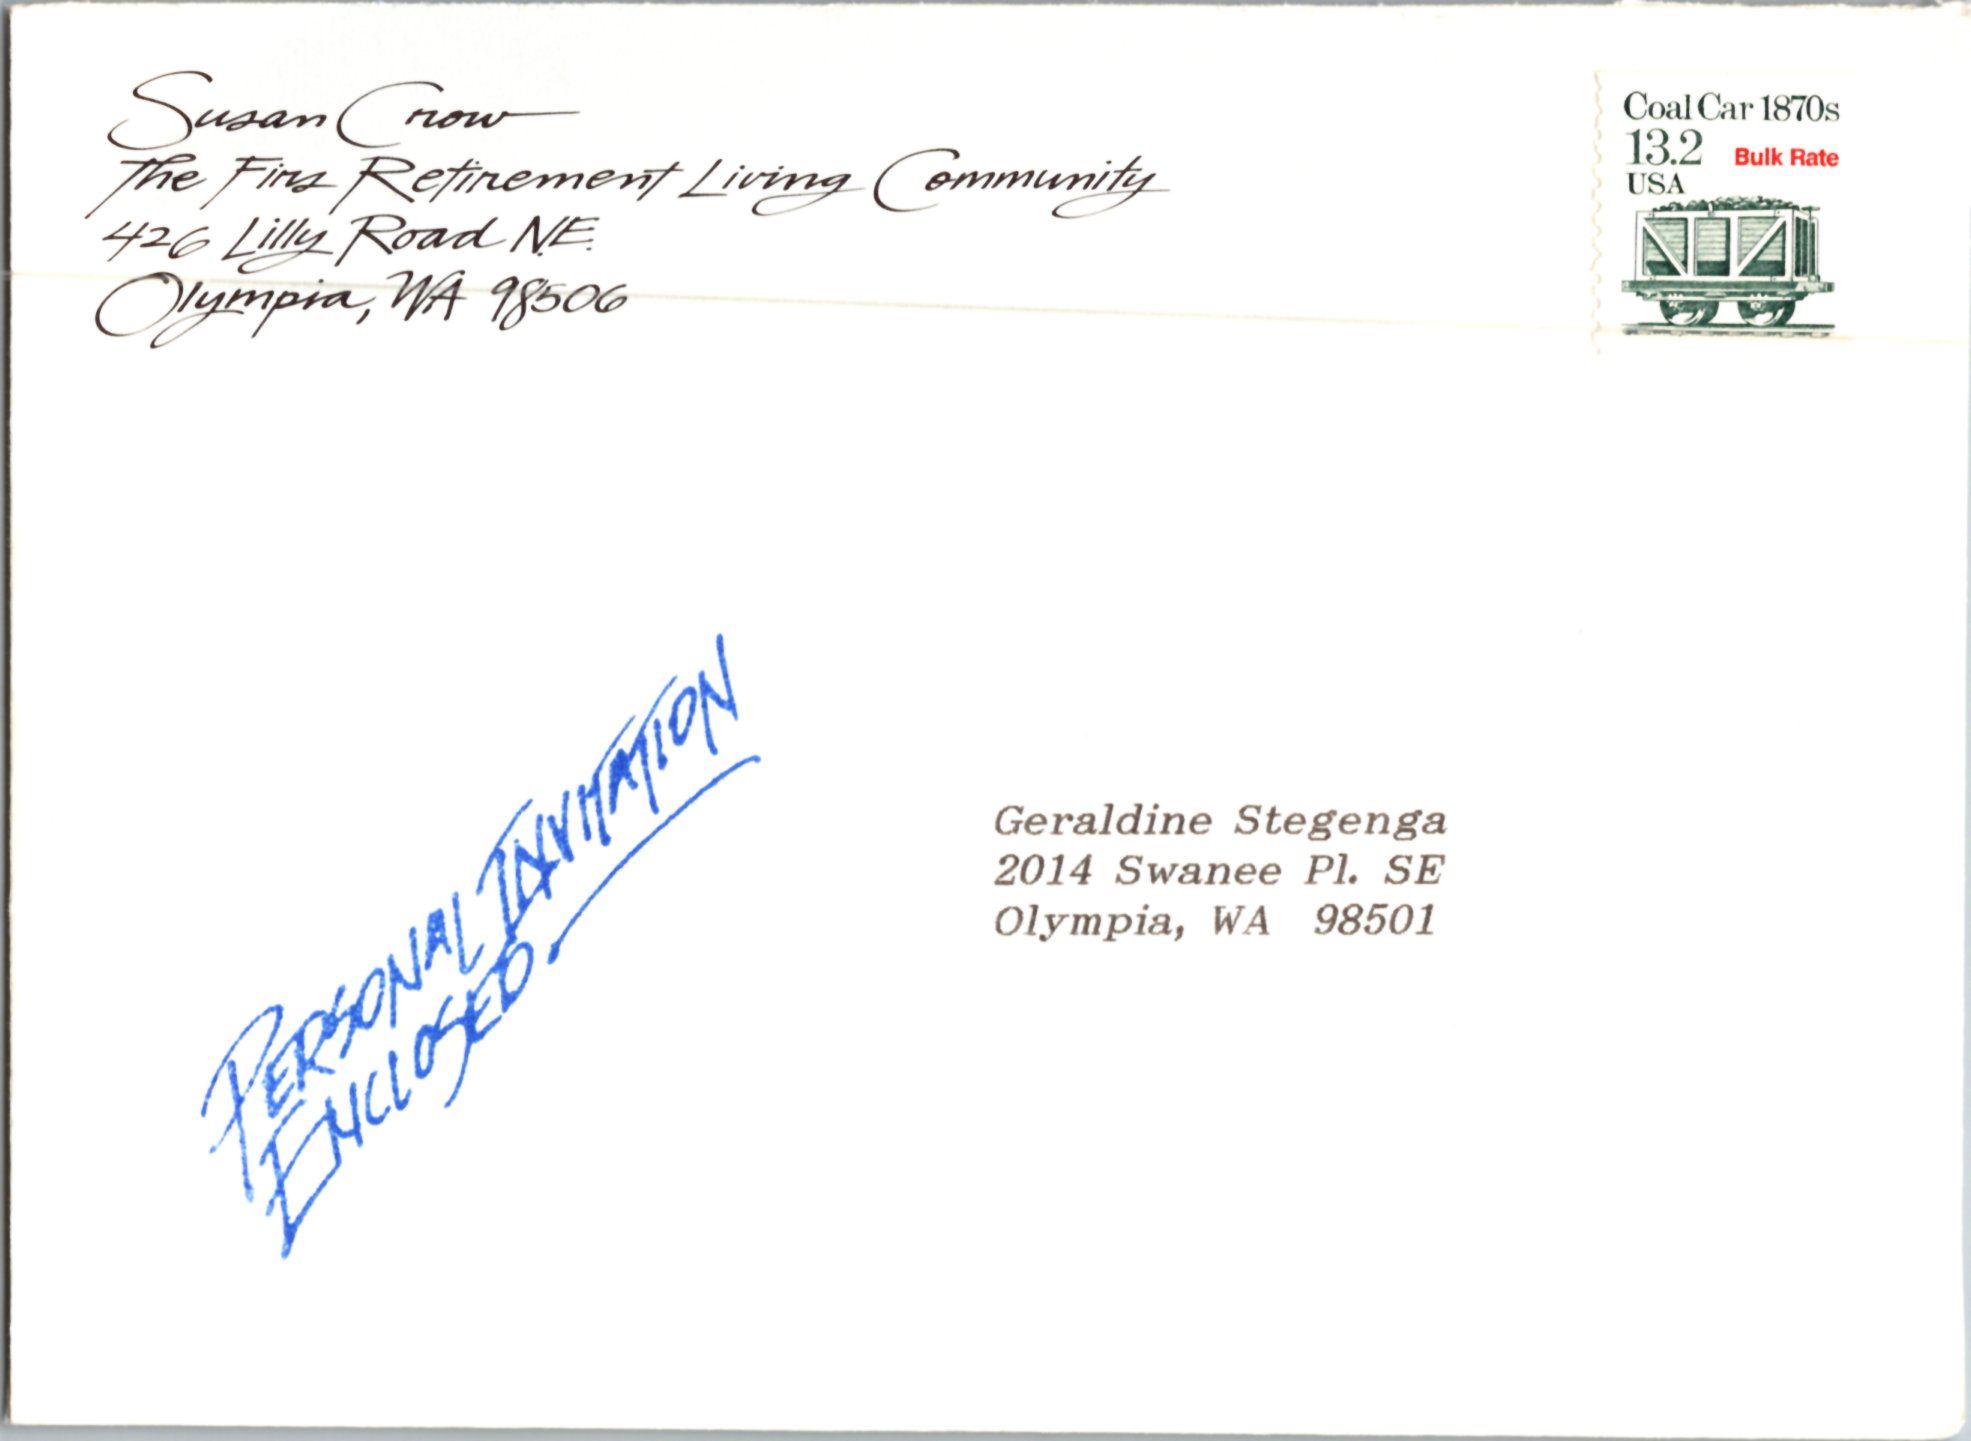 Susan Crow
The Firs Retirement Living Community
426 Lilly Road N.E.
Olympia, WA 98506
Coal Car 1870s
13.2 Bulk Rate
USA
PERSONAL INVITATION
ENCLOSED.
Geraldine Stegenga
2014 Swanee Pl. SE
Olympia, WA 98501